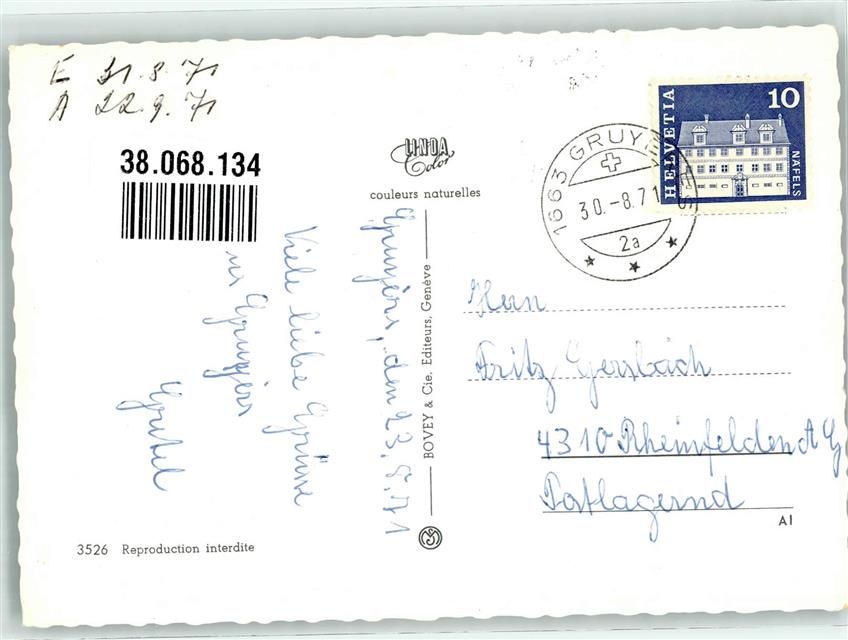 E 31.8.71
A 22.9.71
38.068.134
LINDA
Color
couleurs naturelles
Gruyèrs, den 23.8.71
Viele liebe Grüsse
us Gruyèrs
Gretel
BOVEY & Cie. Editeurs, Genève
3526 Reproduction interdite
HELVETIA
10
NÄFELS
1663 GRUYÈRES
30.-8.71
2a
Herrn
Fritz Gersbach
4310 Rheinfelden AG
Postlagernd
A1